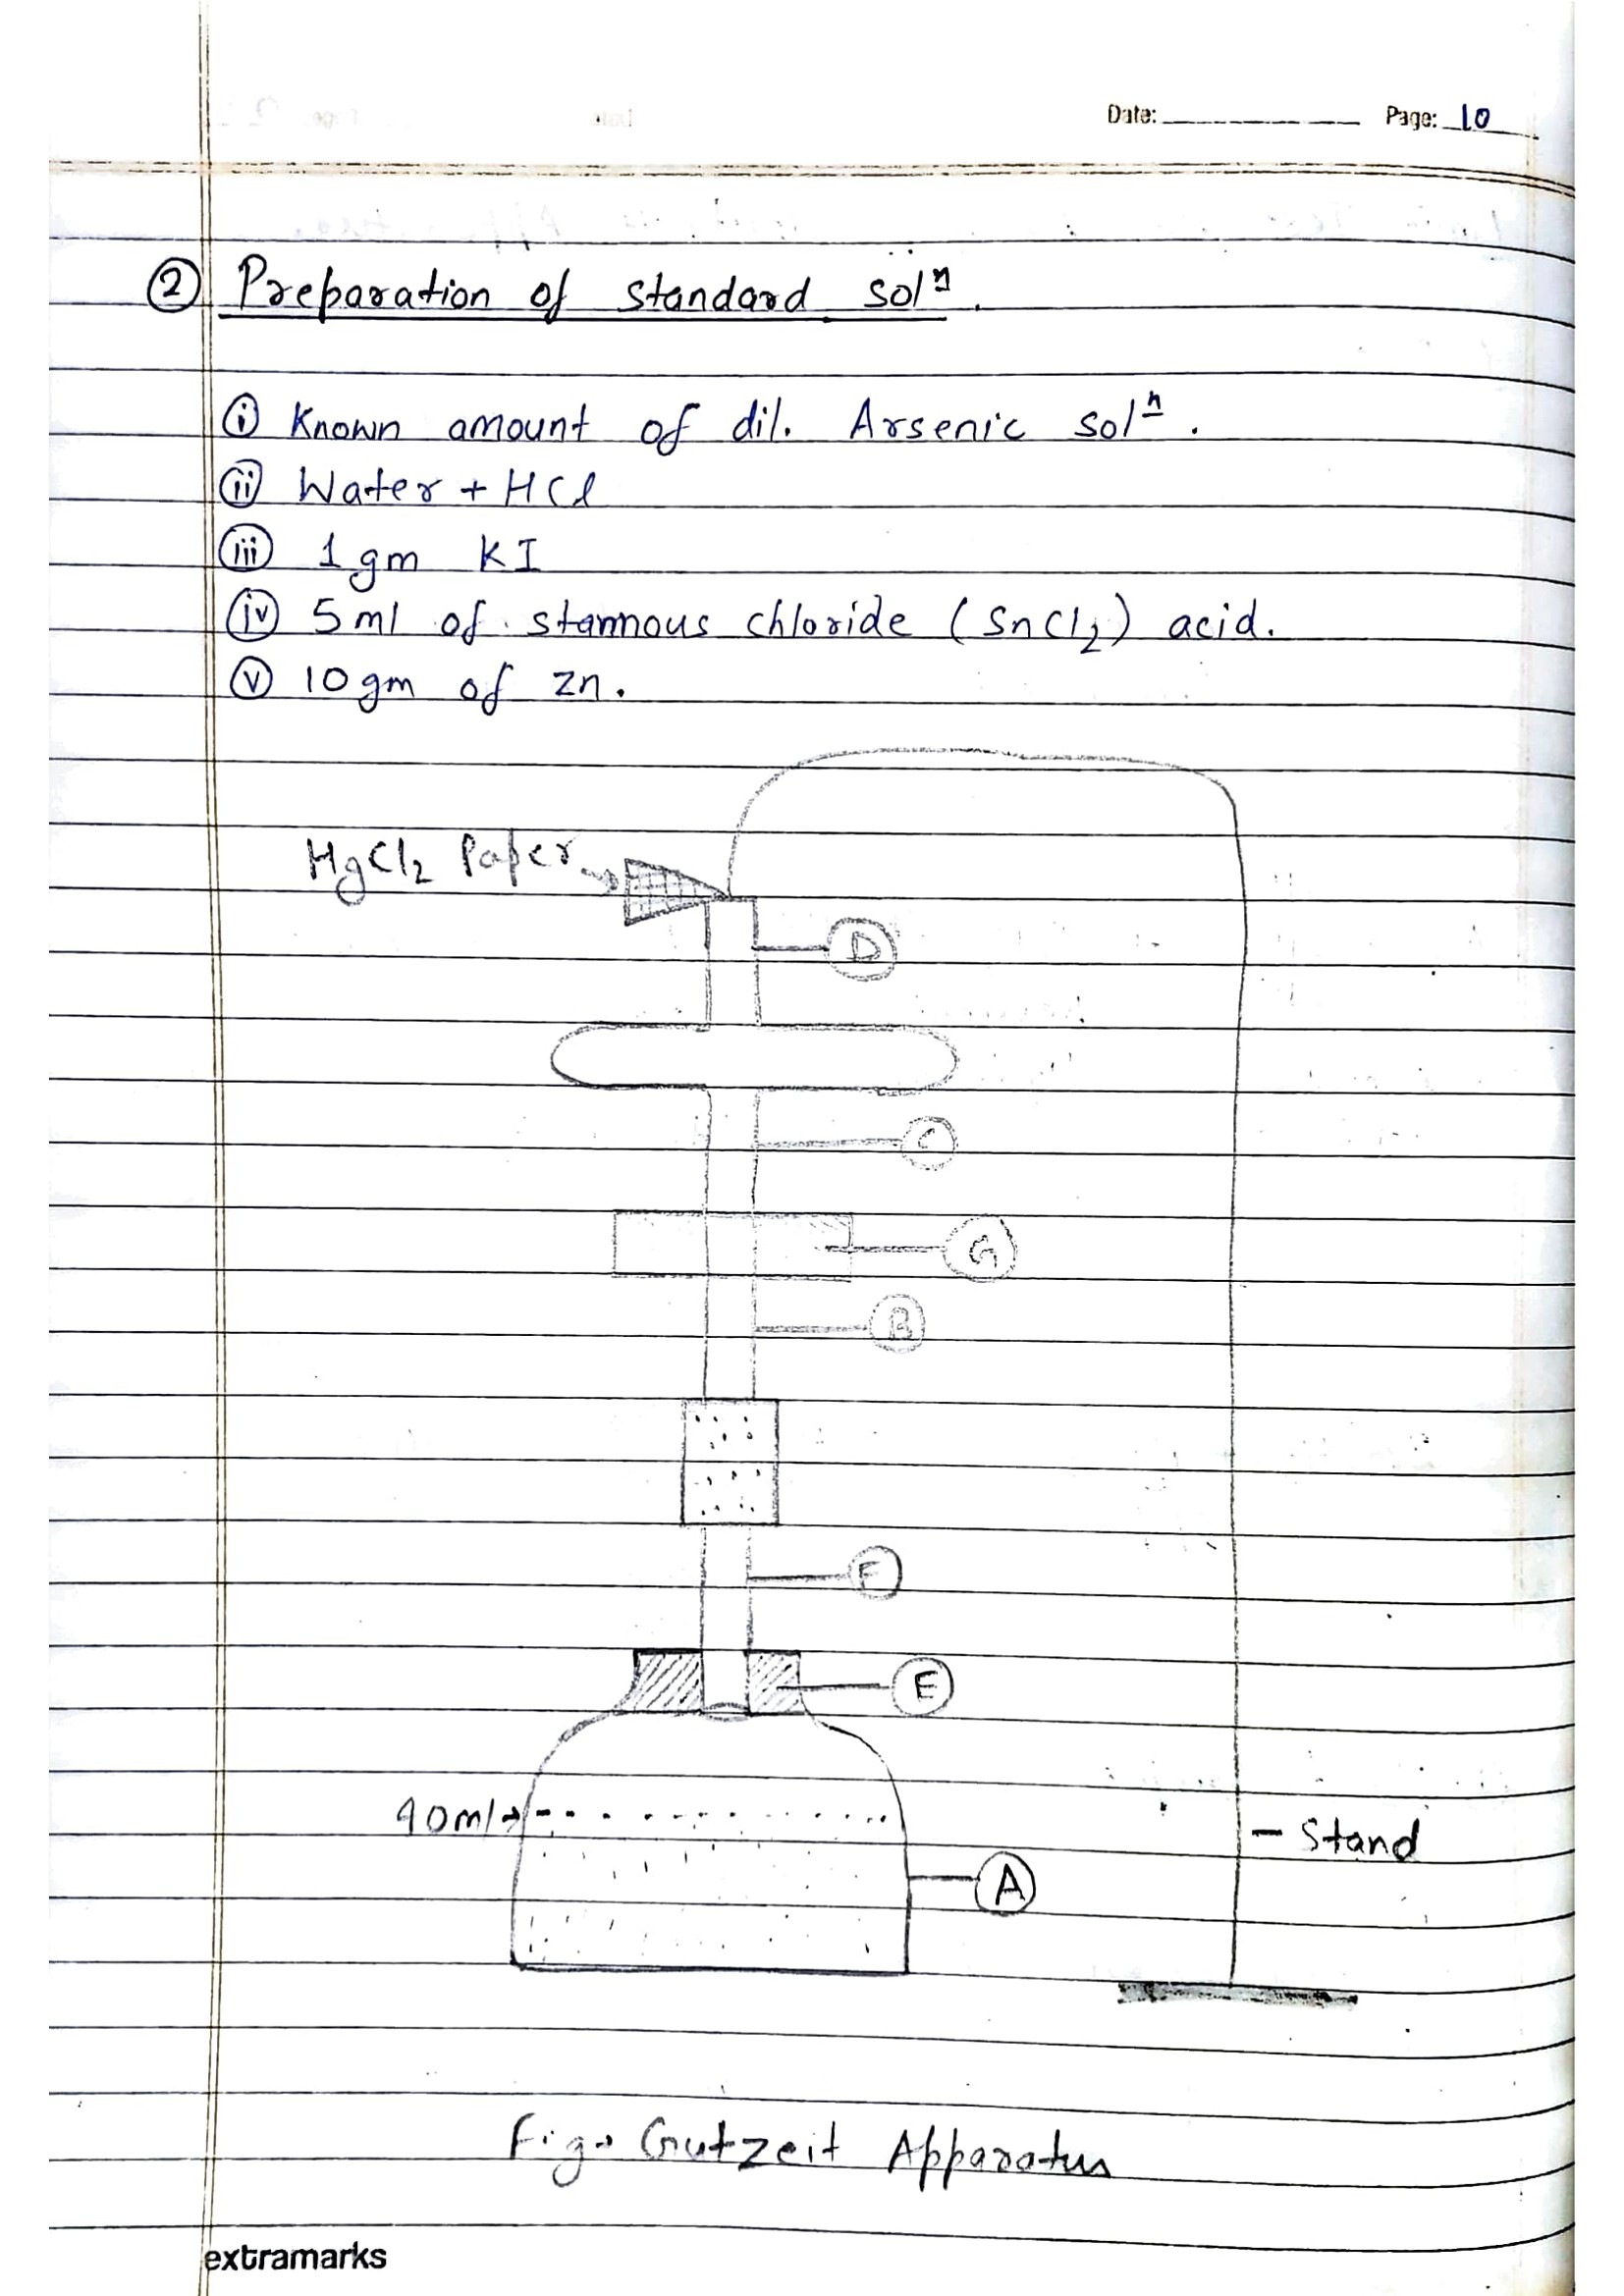 Date: Page: 10
② Preparation of standard solⁿ.
ⓘ Known amount of dil. Arsenic solⁿ.
(ii) Water + HCl
(iii) 1 gm KI
(iv) 5 ml of stannous chloride (SnCl₂) acid.
(v) 10 gm of zn.
HgCl₂ Paper
D
C
G
B
F
E
90ml
Stand
A
Fig→ Gutzeit Apparatus
extramarks